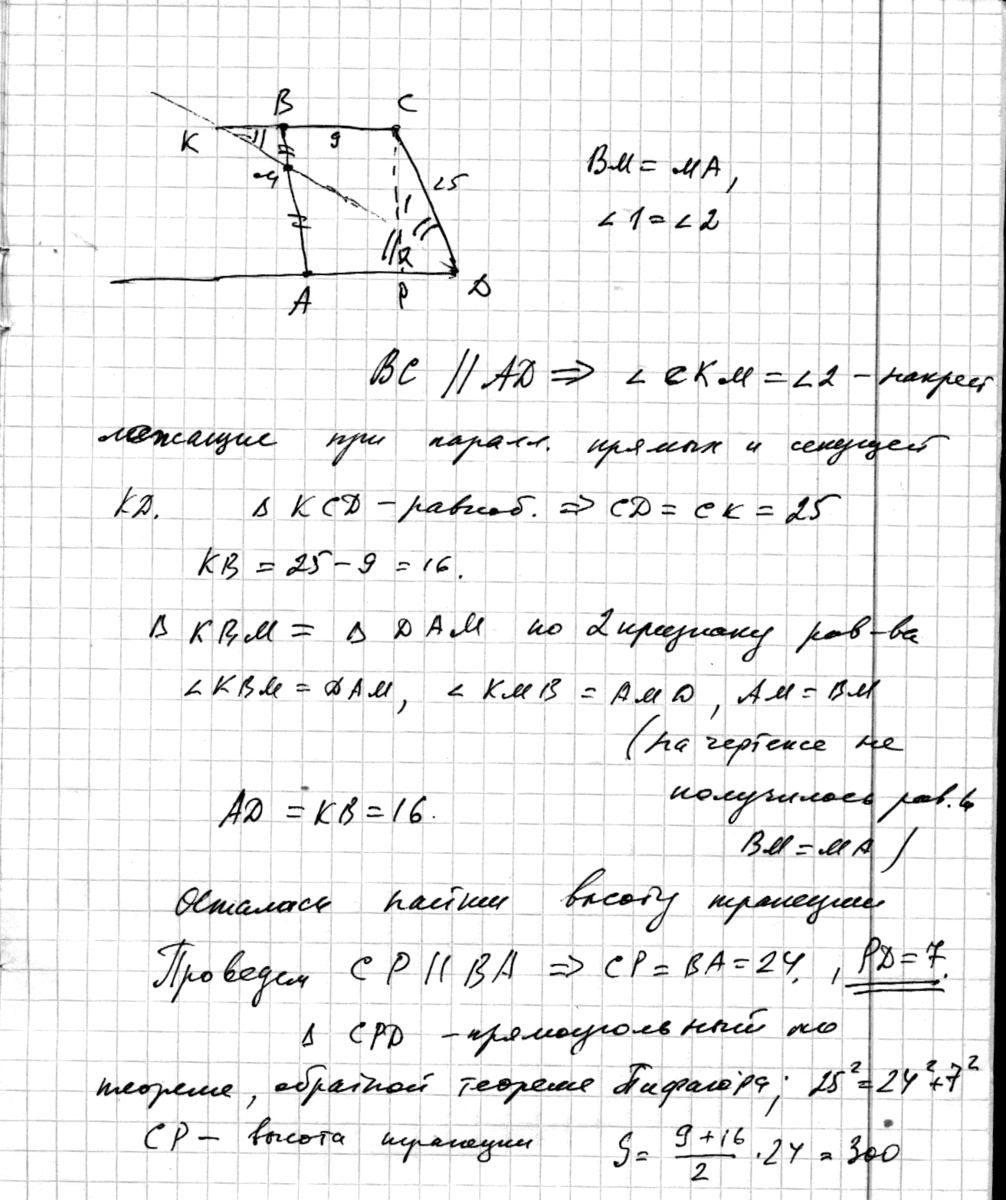 B C
K 9
M 25
1
2
A P D
BM = MA,
∠1 = ∠2
BC || AD ⇒ ∠CKM = ∠2 – накрест
лежащие при паралл. прямых и секущей
KD. Δ KCD – равноб. ⇒ CD = CK = 25
KB = 25 – 9 = 16.
Δ KBM = Δ DAM по 2 признаку рав-ва
∠KBM = DAM, ∠KMB = AMD, AM = BM
(на чертеже не
получилось рав.
AD = KB = 16.
BM = MA)
Осталась найти высоту трапеции
Проведем CP || BA ⇒ CP = BA = 24, PD = 7.
Δ CPD – прямоугольный по
теореме, обратной теореме Пифагора; 25² = 24² + 7²
CP – высота трапеции S = 9+16/2 · 24 = 300